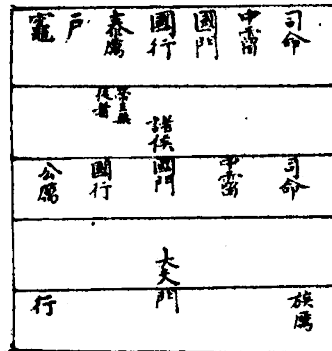 司命
中霤
國門
國行
泰厲
戶
竈
諸侯
帝王無
後者
司命
中霤
國門
國行
公厲
大夫
族厲
門
行